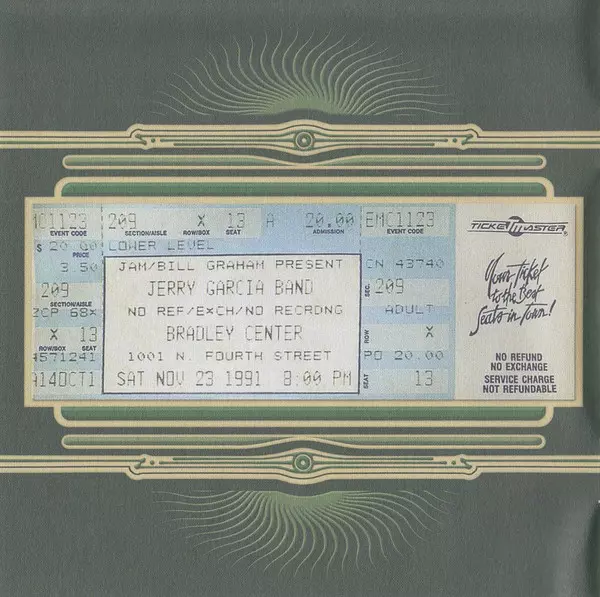 MC1123 209 X 13 A 20.00 EMC1123
EVENT CODE SECTION/AISLE ROW/BOX SEAT ADMISSION EVENT CODE
$ 20.00 LOWER LEVEL
PRICE
3.50
JAM/BILL GRAHAM PRESENT
CN 43740
209
SECTION/AISLE
JERRY GARCIA BAND
SEC. 209
ZCP 68X
NO REF/EXCH/NO RECRDNG
ADULT
X 13
ROW/BOX SEAT
BRADLEY CENTER
ROW X
4571241
1001 N. FOURTH STREET
PO 20.00
A14OCT1
SAT NOV 23 1991 8:00 PM
SEAT 13
TICKETMASTER®
Your Ticket
to the Best
Seats in Town!
NO REFUND
NO EXCHANGE
SERVICE CHARGE
NOT REFUNDABLE